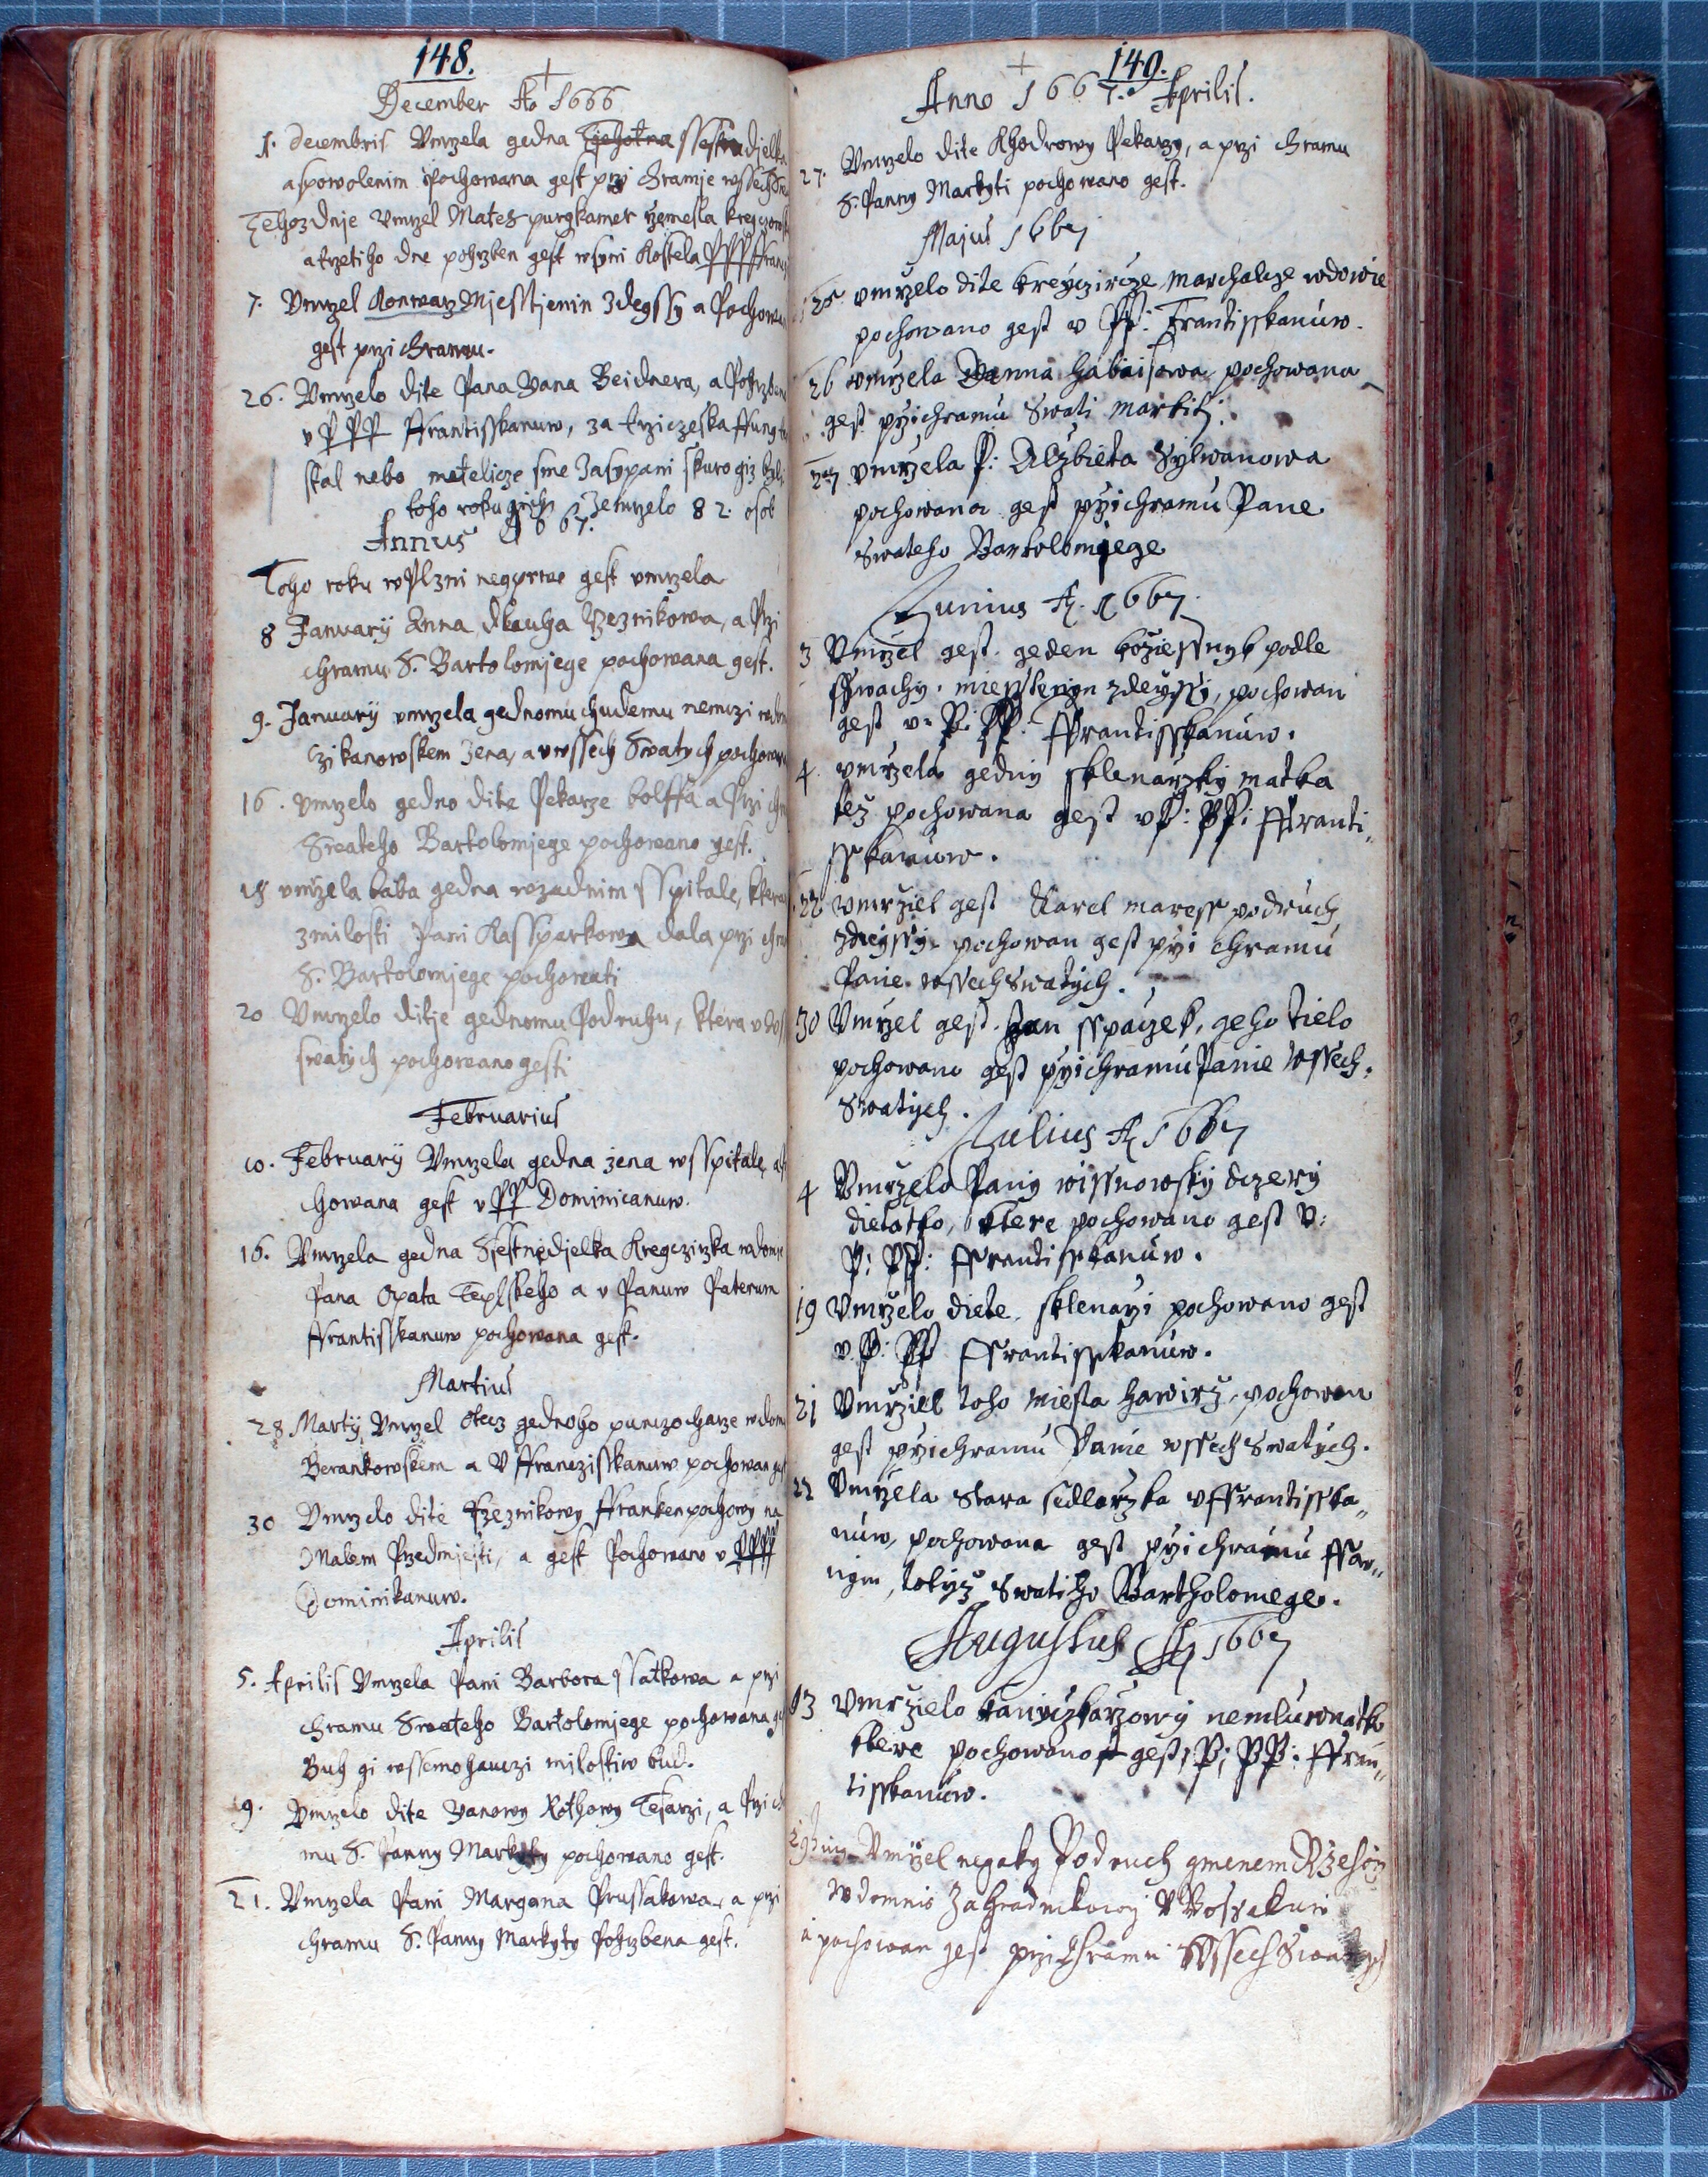 148.
December Ao 1666
1. decembris Vmrzela gedna Tiehotna ssestnedjelka
aspowolenim Pochowana gest przi chramje wssech
Tehozdnje Vmrzel Mates purgkamer rzemesla
atrzetiho dne pohrzben gest wsyni kostela PPPP
7. Vmrzel Konwarz Mjesstjenin zdegssy a Pochowan
gest przi chramu.
26. Vmrzelo dite Pana Vana Beidnera, a Pohrzbeno
v PPP ffrantisskanuw, za trziczeska
skal nebo metelicze sme Zasypani skuro giz byli
toho roku gich Zemrzelo 82. osob
Annus 1667.
Toho roku wPlzni negprwe gest vmrzela
8 January Anna dlauha Rzeznikowa, a Przi
chramu S. Bartolomjege pochowana gest.
9. January vmrzela gednomu chudemu
Czikanowskem zena, a vwssech Swatych pochowana
16. vmrzelo gedno dite Pekarze bolffa a Przi
Swateho Bartolomjege pochowano gest.
18 vmrzela baba gedna wzadnim sspitale, ktera
zmilosti Pani Kassparkowa dala przi
S. Bartolomjege pochowati
20 Vmrzelo ditje gednomu Podruhu, ktera
swatych pochowano gesti
Februarius
10. February Vmrzela gedna zena wsspitale
chowana gest v PP Dominicanuw.
16. Vmrzela gedna Ssestnedjelka Kregczirzka wdomie
Pana Opata Teplskeho a v Panuw Paterum
ffrantisskanuw pochowana gest.
Martius
28 Marty Vmrzel otecz gednoho punczocharze wdomie
Berankowskem a V ffranczisskanuw pochowan gest
30 Vmrzelo dite Rzeznikowy ffrankenpochowy na
Malem Przedmjesti, a gest Pochowano v PPPP
Dominikanuw.
Aprilis
5. Aprilis Vmrzela Pani Barbora ssatkowa a przi
chramu Swateho Bartolomjege pochowana
Buh gi wssemohauczi milostiw bud.
9. Vmrzelo dite Vanowy Rothowy Tesarzi, a Przi
mu S. Panny Markyty pochowano gest.
21. Vmrzela Pani Margana Prussakowa, a przi
chramu S. Panny Markyty Pohrzbena gest.
149.
Anno 1667. Aprilis.
27. Vmrzelo dite Khodrowy Pekarzy, a przi chramu
S. Panny Markyti pochowano gest.
Majus 1667
25 vmrzelo dite kreyczircze marchalcze wdowie
pochowano gest v PP: Frantisskanuw.
26 vmrzela Danna habaisowa pochowana
gest przichramu Swati markiti.
27 vmrzela P: Alzbieta Sylwanowa
pochowana gest przichramu Pane
Swateho Bartolomiege
Junius A. 1667.
3 Vmrzel gest geden koziessnyk podle
sswachy. miesstenyn zdeyssy, pochowan
gest v: P: PP: ffrantisskanuw.
4. vmrzela gediny sklenarzky matka
tez pochowana gest v P: PP: ffranti„
sskanuw.
22 vmrziel gest Karel maress podruch
zdeyssy. pochowan gest przi chramu
Panie wssechswatych.
30 Vmrzel gest Jan sspaczek, geho tielo
pochowano gest przichramu Panie wssech.
swatych.
Julius A 1667
4 Vmrzelo Pany wissnowsky dczery
dielatko, ktere pochowano gest v:
P: PP: ffrantisskanuw.
19 Vmrzelo diete sklenarzi pochowano gest
v. P: PP ffrantisskanuw.
21 Vmrziel toho miesta hawirz, pochowan
gest przichramu Panie wssechswatych.
22 Vmrzela stara sedlarzka vffrantisska„
nuw, pochowana gest przichramu ffar„
nym, totyz swatiho Bartholomege.
Augustus A 1667
13 vmrzielo kaniczkarzowy nemluwnatko
ktere pochowano gest, P; PP: ffran„
tisskanuw.
Vmrzel negaky Podruch gmenem
w domnie Zahradnikowy V
a pochowan gest przi Chramu Wssech Swatych